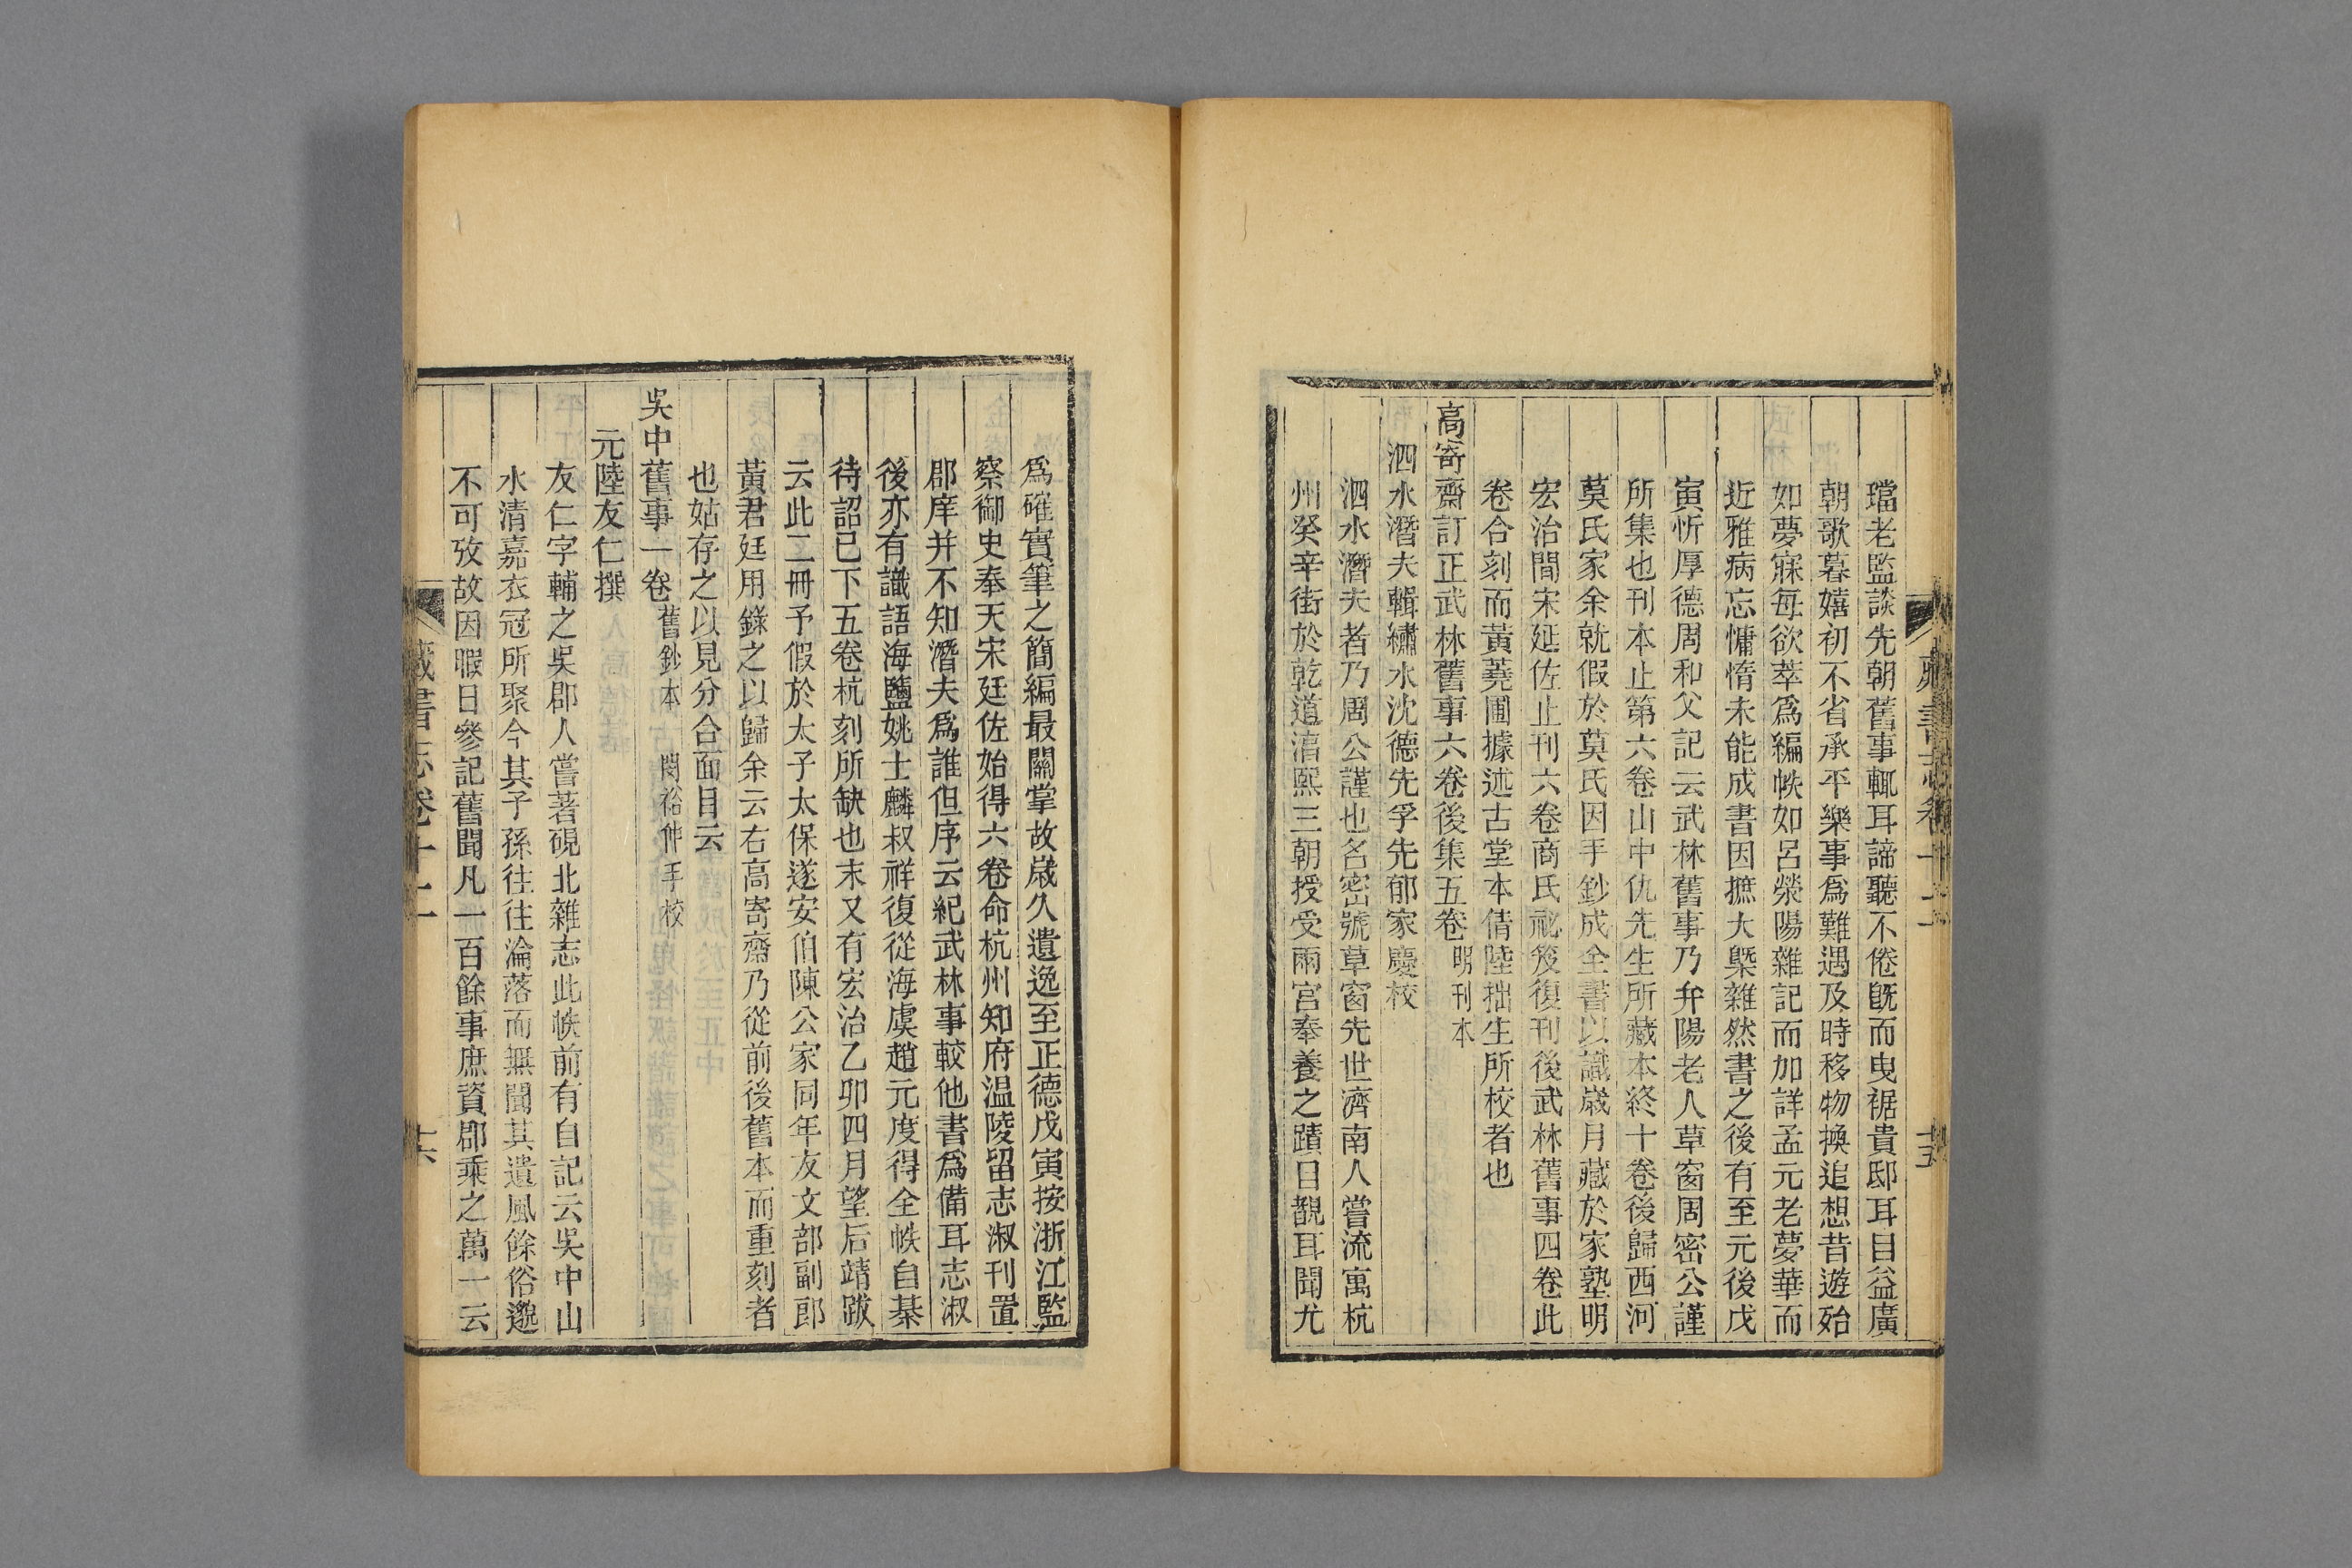 藏書志卷十二
十五
璫老監談先朝舊事輒耳諦聽不倦旣而曳裾貴邸耳目益廣
朝歌暮嬉初不省承平樂事爲難遇及時移物換追想昔遊殆
如夢寐每欲萃爲編帙如呂滎陽雜記而加詳孟元老夢華而
近雅病忘慵惰未能成書因摭大槩雜然書之後有至元後戊
寅忻厚德周和父記云武林舊事乃弁陽老人草窗周密公謹
所集也刊本止第六卷山中仇先生所藏本終十卷後歸西河
莫氏家余就假於莫氏因手鈔成全書以識歲月藏於家塾明
宏治間宋延佐止刊六卷商氏祕笈復刊後武林舊事四卷此
卷合刻而黃蕘圃據述古堂本倩陸拙生所校者也
高寄齋訂正武林舊事六卷後集五卷明刊本
泗水潛夫輯繡水沈德先孚先郁家慶校
泗水潛夫者乃周公謹也名密號草窗先世濟南人嘗流寓杭
州癸辛街於乾道淳熙三朝授受兩宮奉養之蹟日覩耳聞尤
爲確實筆之簡編最關掌故歲久遺逸至正德戊寅按浙江監
察御史奉天宋廷佐始得六卷命杭州知府温陵留志淑刊置
郡庠并不知潛夫爲誰但序云紀武林事較他書爲備耳志淑
後亦有識語海鹽姚士麟叔祥復從海虞趙元度得全帙自棊
待詔已下五卷杭刻所缺也末又有宏治乙卯四月望后靖跋
云此二冊予假於太子太保遂安伯陳公家同年友文部副郎
黃君廷用錄之以歸余云右高寄齋乃從前後舊本而重刻者
也姑存之以見分合面目云
吳中舊事一卷舊鈔本　閔裕仲手校
元陸友仁撰
友仁字輔之吳郡人嘗著硯北雜志此帙前有自記云吳中山
水清嘉衣冠所聚今其子孫往往淪落而無聞其遺風餘俗邈
不可攷故因暇日參記舊聞凡一百餘事庶資郡乘之萬一云
藏書志卷十二
十六